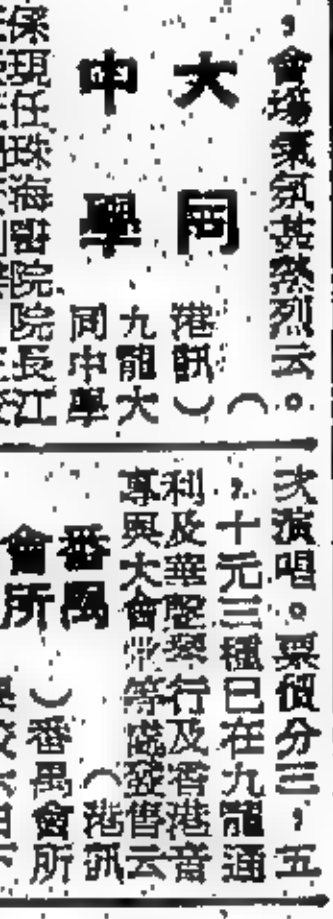 ，會場氣氛甚熱烈云。
大同
中學
（
港訊）
九龍大
同中學
係現任珠海書院院長江
次演唱。票價分三，五
，十元三種已在九龍通
利及華聲琴行及香港音
專與大會堂等處發售云
番禺
會所
（港訊
）番禺會所